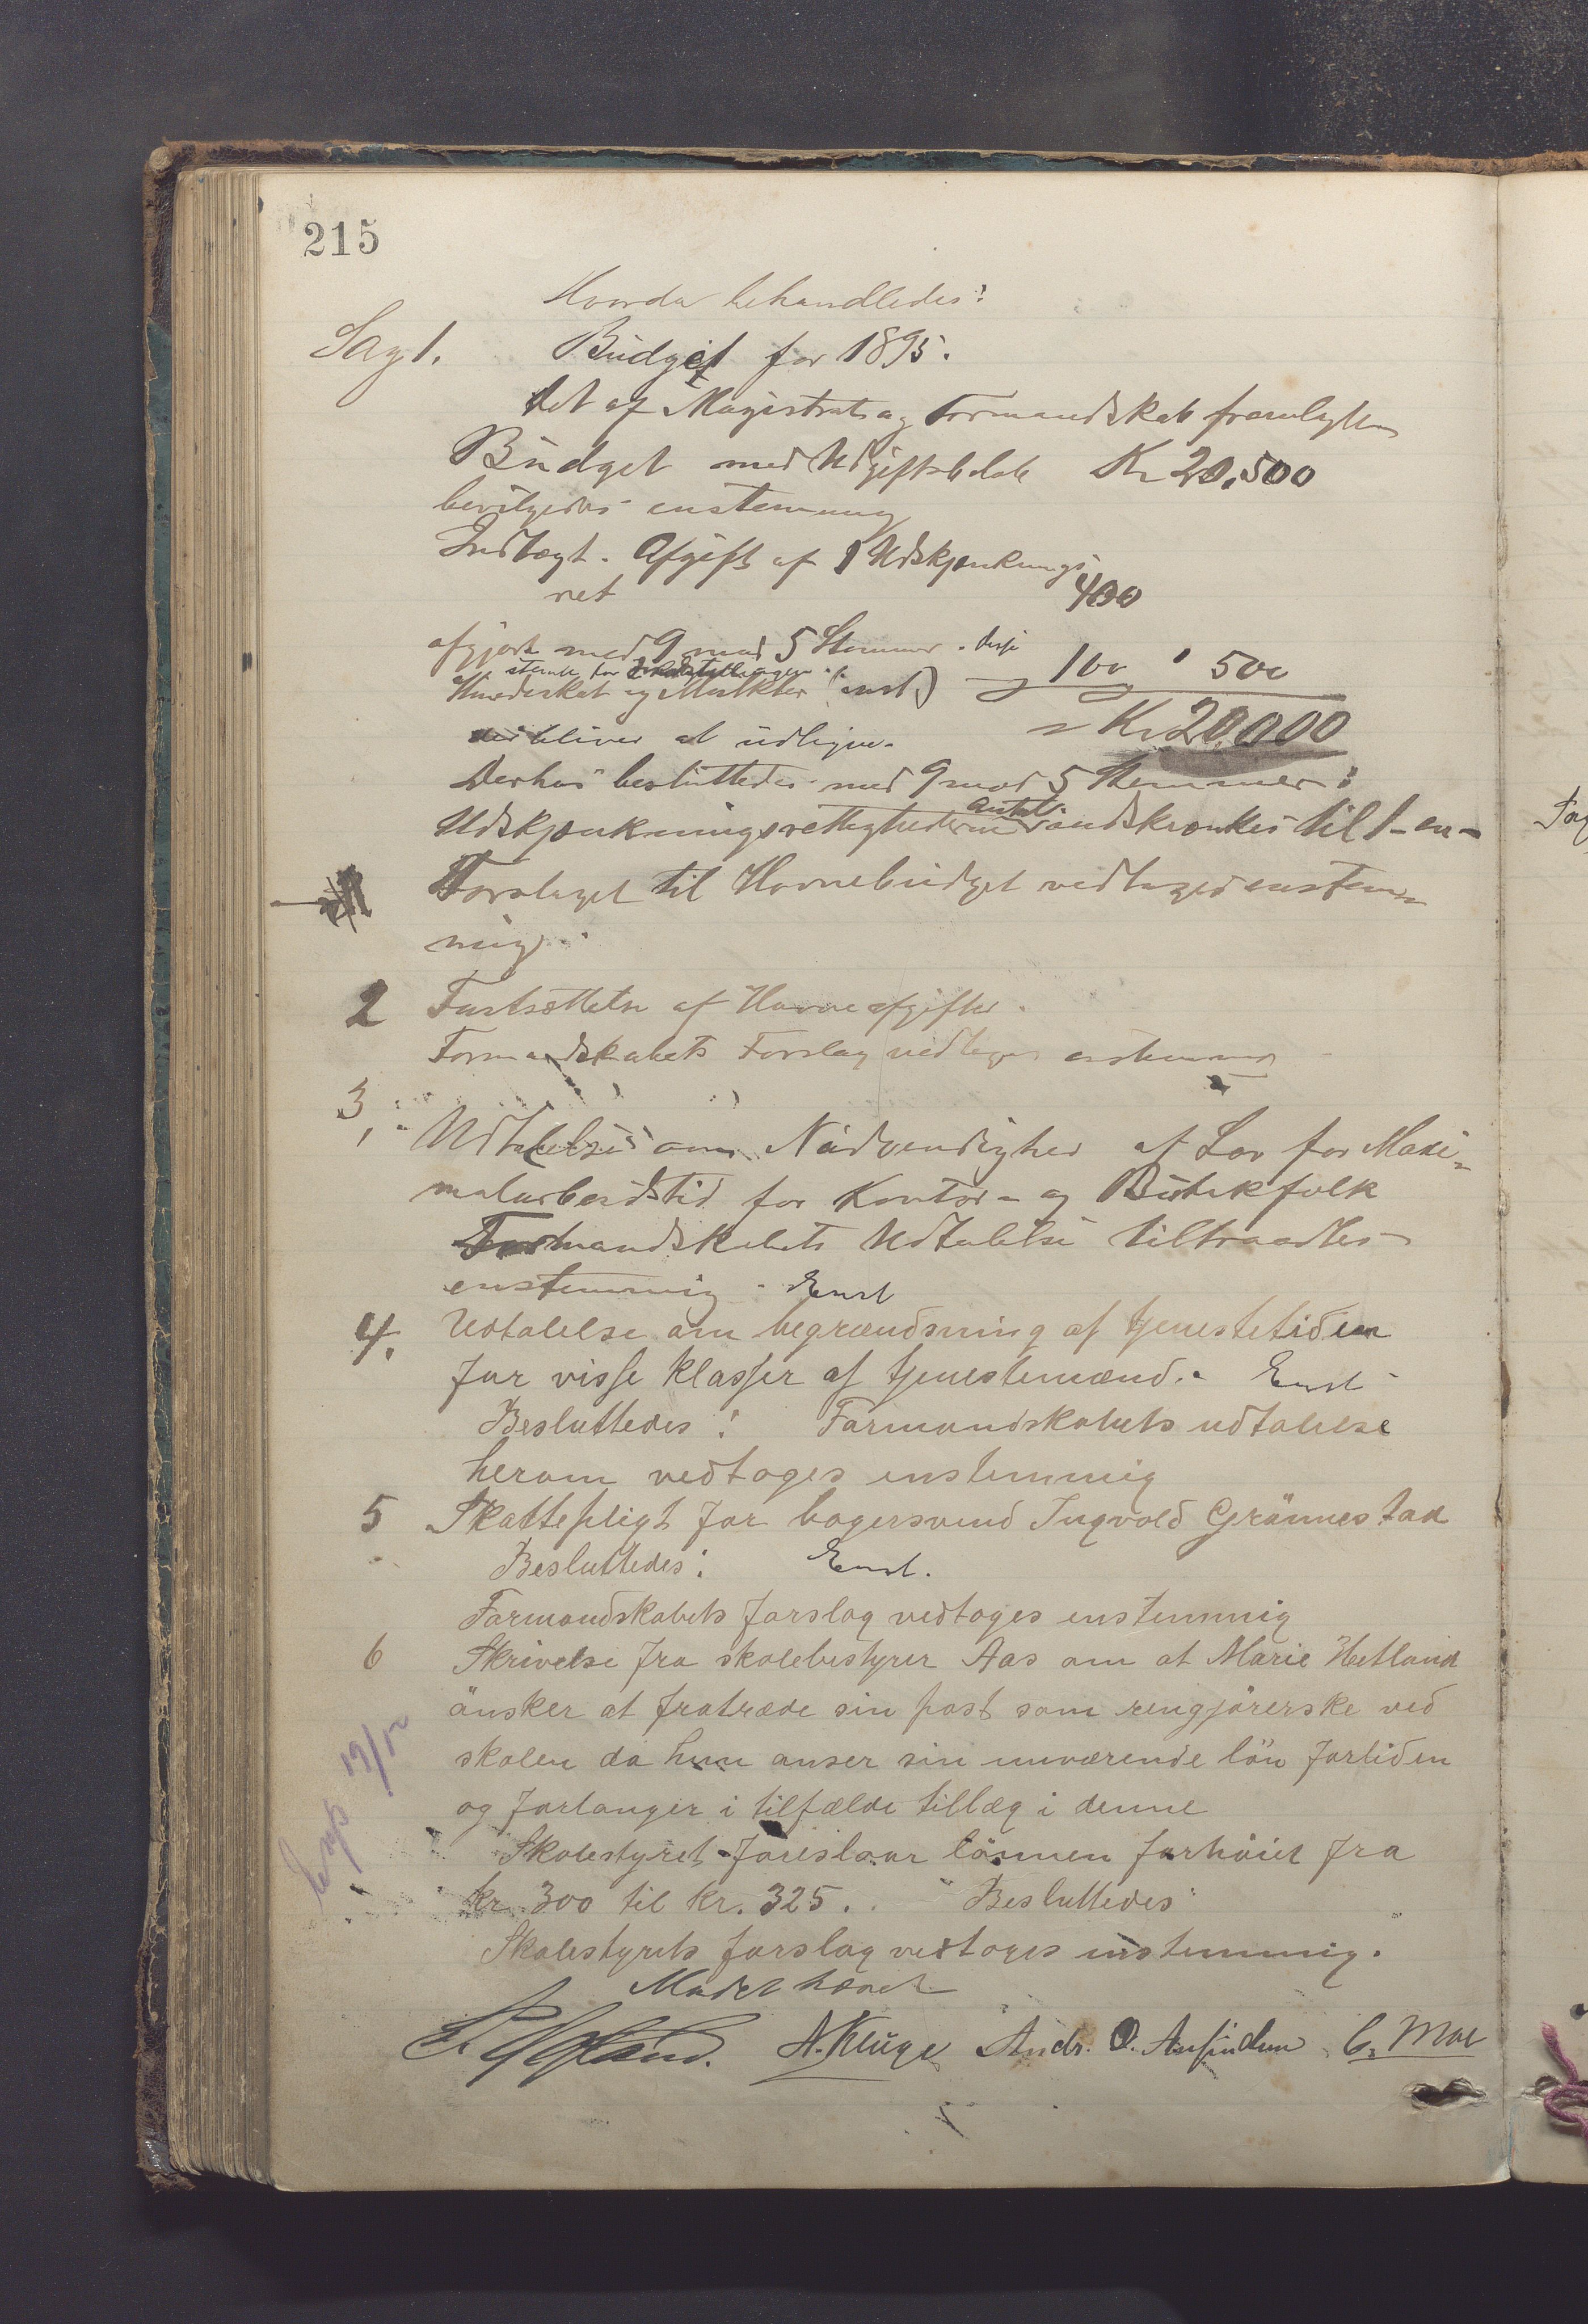 215
Hvorda behandledes:
Sag 1. Budget for 1895.
Det af Magistrat og Formandskab fremlagte
Budget med Udgiftsbeløb Kr 20.500
bevilgedes enstemmig
Indtægt. Afgift af 1 Udskjænknings
ret 400
afgjort med 9 mod 5 Stemmer.
stemte for
Hundeskat og (enst.) 100 500
Kr 20,000
bliver at udligne.
Derhos besluttedes med 9 mod 5 Stemmer:
Antal
Udskjænkningsrettighederne indskrænkes til 1 - en -
Forslaget til Havnebudget vedtoges enstem-
mig.
2 Fastsættelse af Havneafgifter.
Formandskabets Forslag vedtoges enstemmig
3, Udtalelse om Nødvendighed af Lov for Maxi-
malarbeidstid for Kontor- og Butikfolk
Formandskabets Udtalelse tiltraadtes
enstemmig. Enst
4. Udtalelse om begrændsning af tjenestetiden
for visse klasser af tjenestemænd. Enst
Besluttedes: Formandskabets udtalelse
herom vedtoges enstemmig
5 Skattepligt for bagersvend Ingvald Grönnestad
Besluttedes: Enst.
Formandskabets forslag vedtoges enstemmig
6 Skrivelse fra skolebestyrer Aas om at Marie Hetland
önsker at fratræde sin post som rengjörerske ved
skolen da hun anser sin nuværende lön forliden
og forlanger i tilfælde tillæg i denne
Exp 17/12
Skolestyret foreslaar lönnen forhöiet fra
kr. 300 til kr. 325. Besluttedes
Skolestyrets forslag vedtoges enstemmig.
Mödet hævet
A. Kluge Andr. O. C. Moe